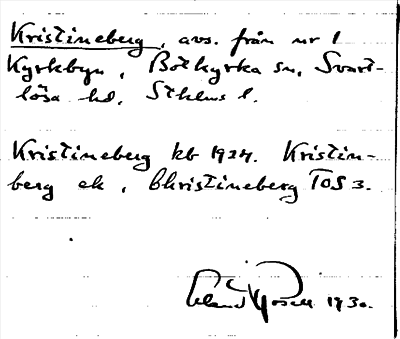 Kristineberg, avs. från nr 1
Kyrkbyn, Botkyrka sn, Svart-
lösa hd, Sthlms l.
Kristineberg kb 1924. Kristin-
berg ek, Christineberg TOS 3.
Rosell 1930.